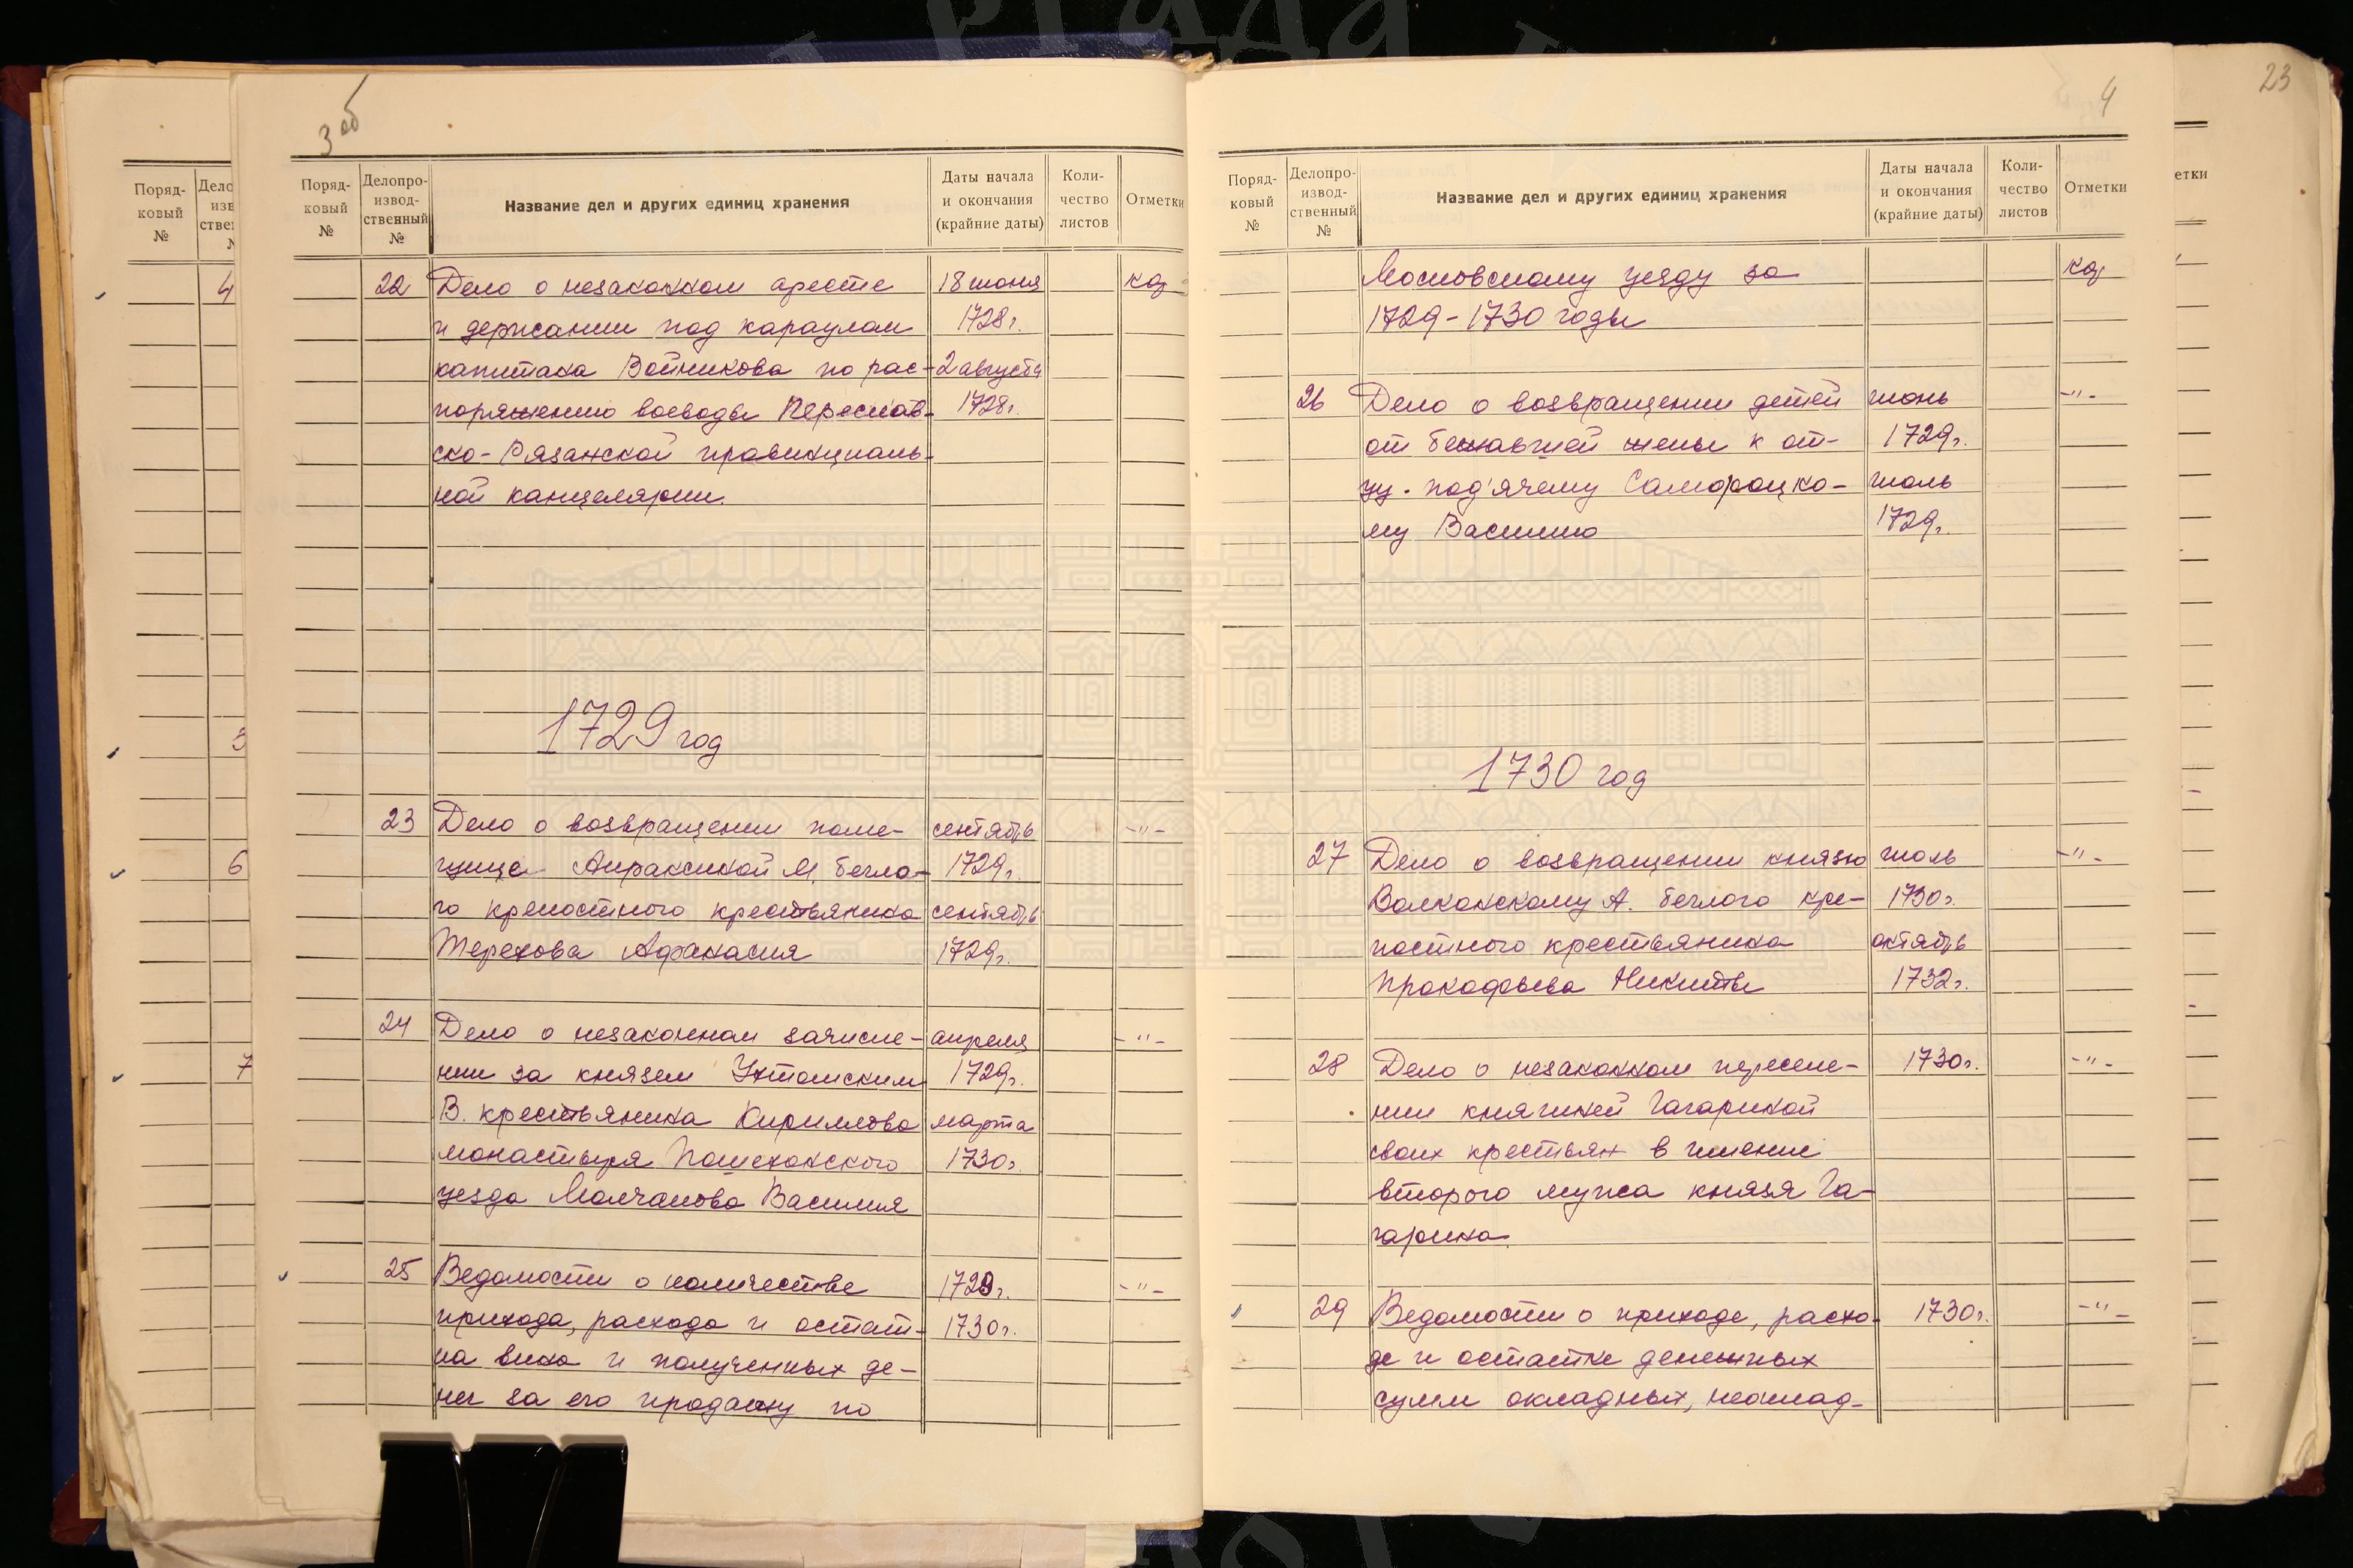 3 об
Поряд-
ковый
№
Делопро-
извод-
ственный
№
Название дел и других единиц хранения
Даты начала
и окончания
(крайние даты)
Коли-
чество
листов
Отметки
22 Дело о незаконном аресте 18 июня
и держании под караулом 1728 г.
капитана Войникова по рас- 2 августа
поряжению воеводы Переслав- 1728 г.
ско-Рязанской провинциаль-
ной канцелярии.
1729 год
23 Дело о возвращении поме- сентябрь -"-
щице Апраксиной М. бегло- 1729 г.
го крепостного крестьянина сентябрь
Терехова Афанасия 1729 г.
24 Дело о незаконном зачисле- апреля -"-
нии за князем Ухтомским 1729 г.
В. крестьянина Кириллова марта
монастыря Пошехонского 1730 г.
уезда Молчанова Василия
25 Ведомости о количестве 1729 г. -"-
прихода, расхода и остат- 1730 г.
ка вина и полученных де-
нег за его продажу по
4
Поряд-
ковый
№
Делопро-
извод-
ственный
№
Название дел и других единиц хранения
Даты начала
и окончания
(крайние даты)
Коли-
чество
листов
Отметки
Московскому уезду за
1729-1730 годы
26 Дело о возвращении детей июнь -"-
от бежавшей жены к от- 1729 г.
цу. под'ячему Самороцко- июль
му Василию 1729 г.
1730 год
27 Дело о возвращении князю июль -"-
Волконскому А. беглого кре- 1730 г.
постного крестьянина октябрь
Прокофьева Никиты 1732 г.
28 Дело о незаконном переселе- 1730 г. -"-
нии княгиней Гагариной
своих крестьян в имение
второго мужа князя Га-
гарина
29 Ведомости о приходе, расхо- 1730 г. -"-
де и остатке денежных
сумм окладных, неоклад-
23
Поряд-
ковый
№
4
6
7
етки